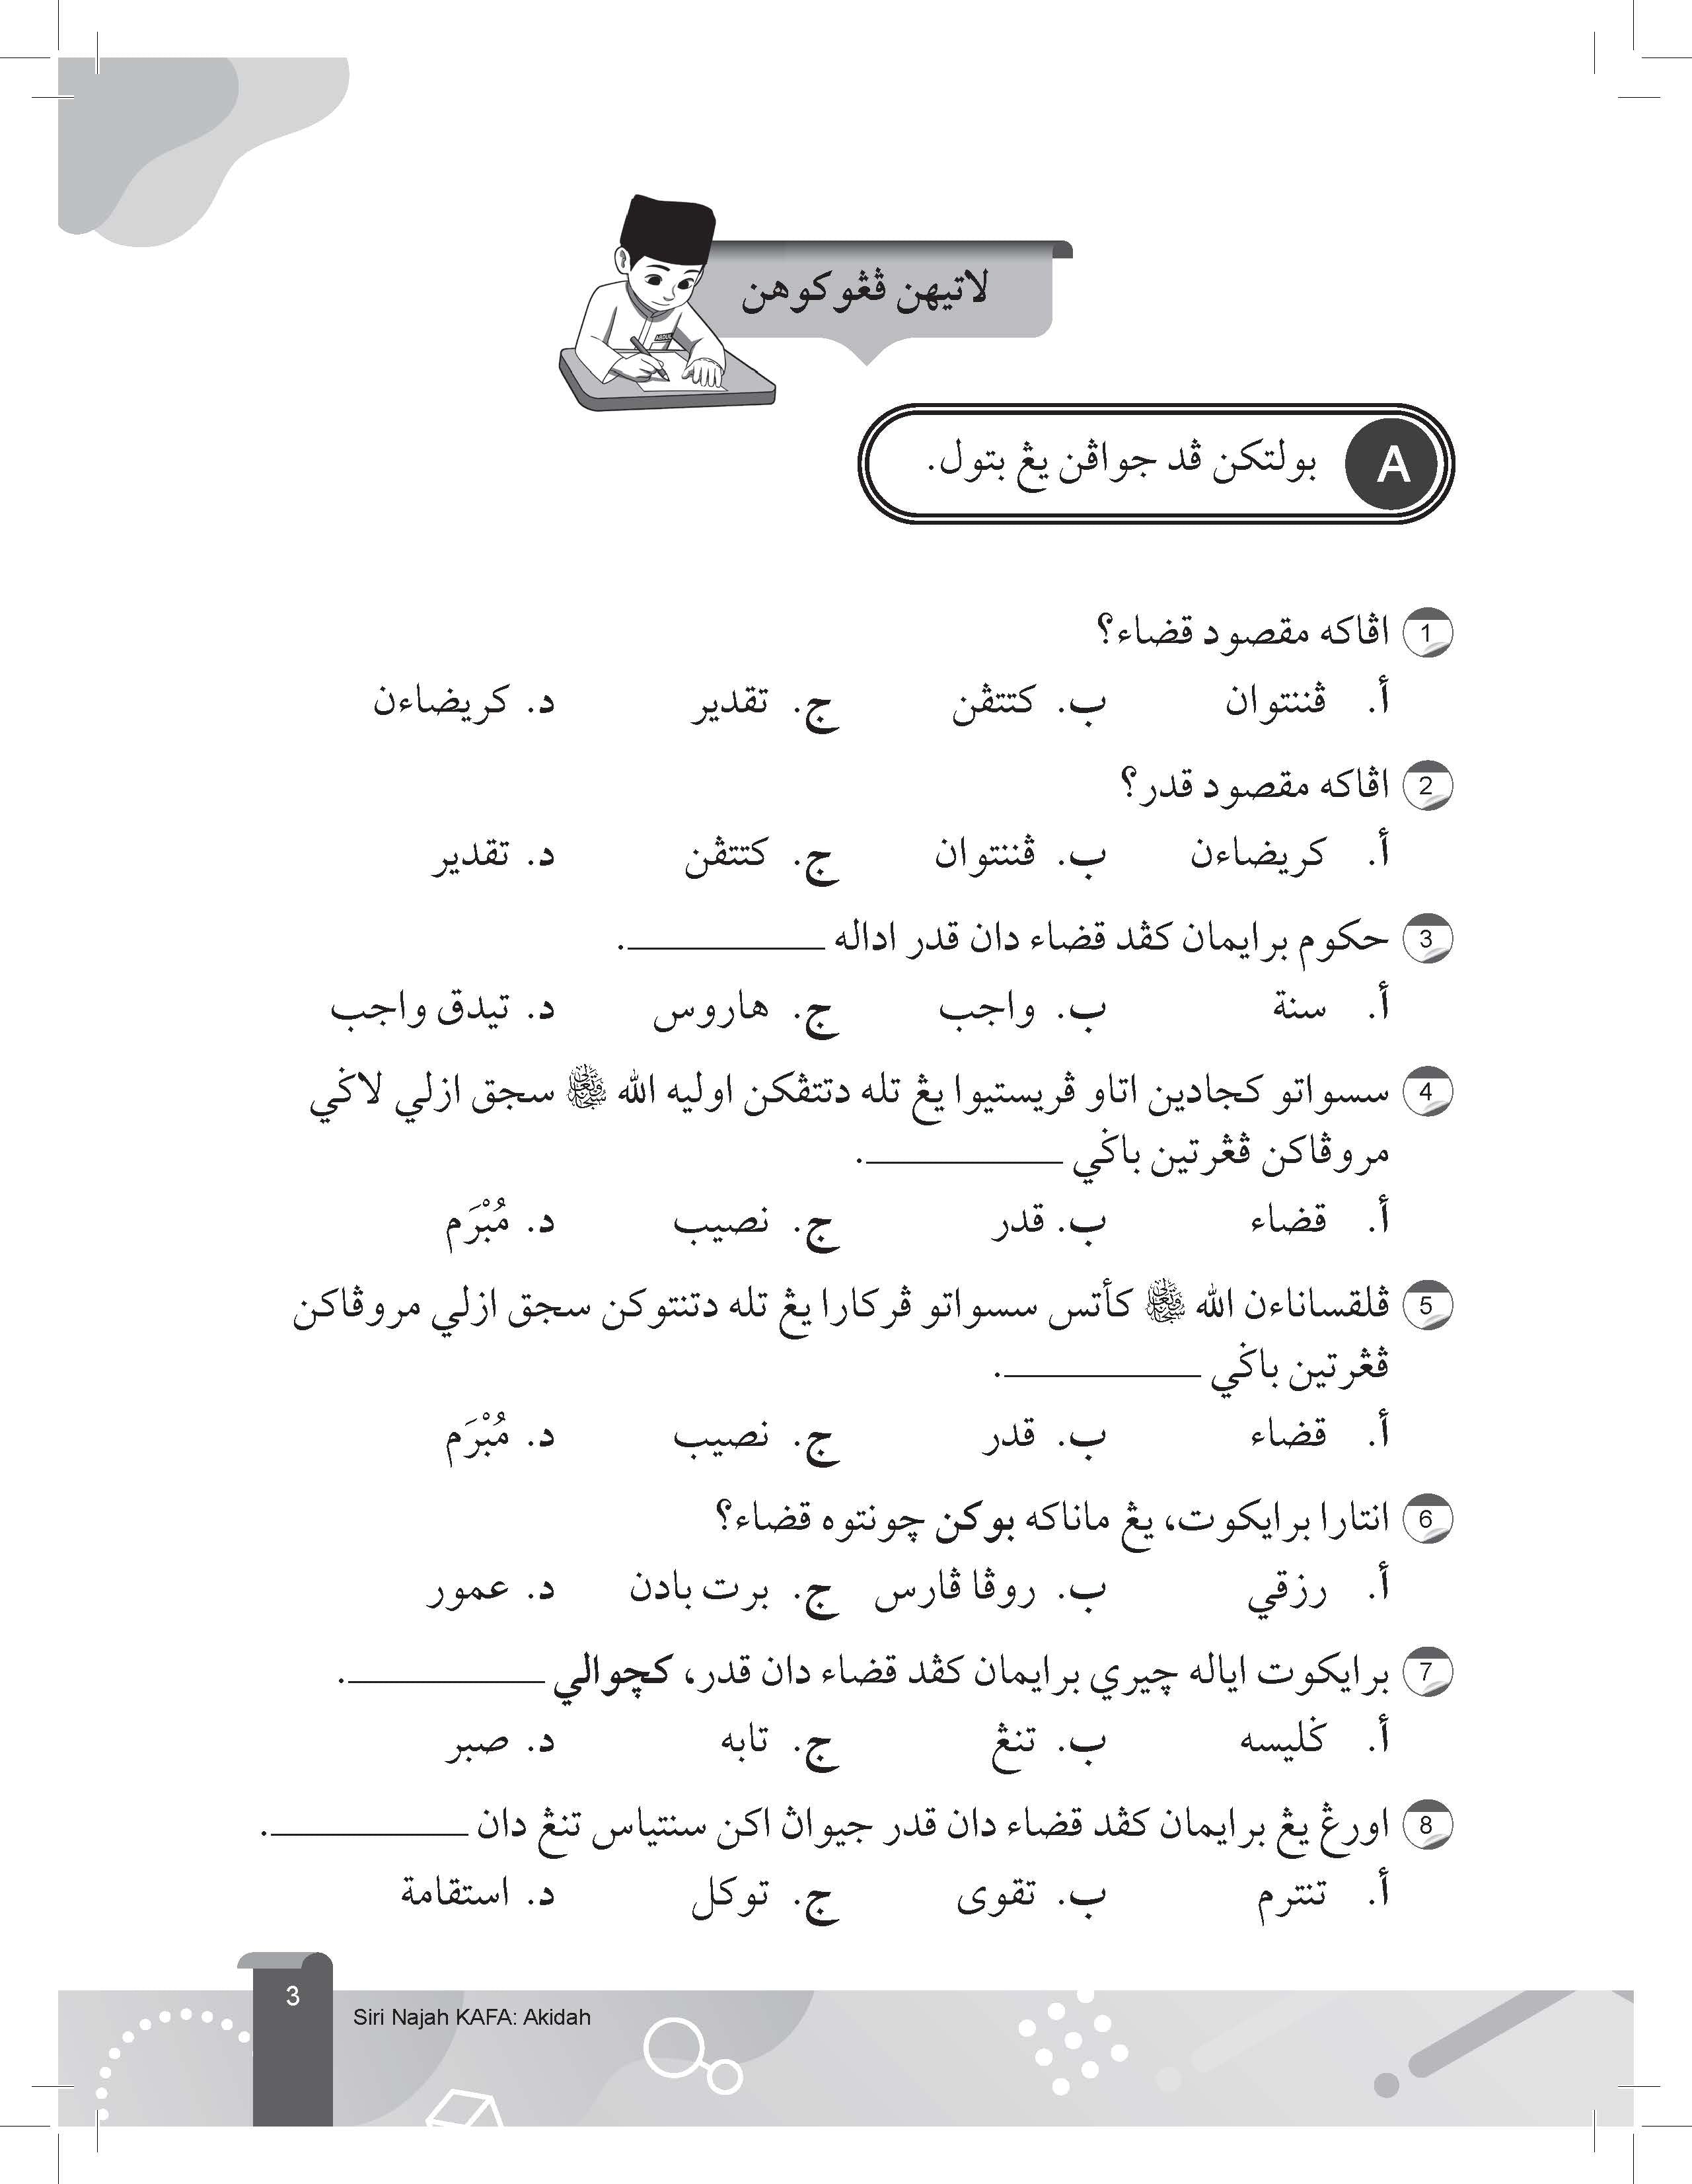 لاتيهن ڤڠوكوهن
A بولتكن ڤد جواڤن يڠ بتول.
1 اڤاكه مقصود قضاء؟
أ. ڤننتوان ب. كتتڤن ج. تقدير د. كريضاءن
2 اڤاكه مقصود قدر؟
أ. كريضاءن ب. ڤننتوان ج. كتتڤن د. تقدير
3 حكوم برايمان كڤد قضاء دان قدر اداله ____________.
أ. سنة ب. واجب ج. هاروس د. تيدق واجب
4 سسواتو كجادين اتاو ڤريستيوا يڠ تله دتتڤكن اوليه الله سبحانه وتعالى سجق ازلي لاݢي
مروڤاكن ڤڠرتين باݢي ____________.
أ. قضاء ب. قدر ج. نصيب د. مُبْرَم
5 ڤلقساناءن الله سبحانه وتعالى كأتس سسواتو ڤركارا يڠ تله دتنتوكن سجق ازلي مروڤاكن
ڤڠرتين باݢي ____________.
أ. قضاء ب. قدر ج. نصيب د. مُبْرَم
6 انتارا برايكوت، يڠ ماناكه بوكن چونتوه قضاء؟
أ. رزقي ب. روڤا ڤارس ج. برت بادن د. عمور
7 برايكوت اياله چيري برايمان كڤد قضاء دان قدر، كچوالي ____________.
أ. ݢليسه ب. تنڠ ج. تابه د. صبر
8 اورڠ يڠ برايمان كڤد قضاء دان قدر جيواڽ اكن سنتياس تنڠ دان ____________.
أ. تنترم ب. تقوى ج. توكل د. استقامة
3
Siri Najah KAFA: Akidah